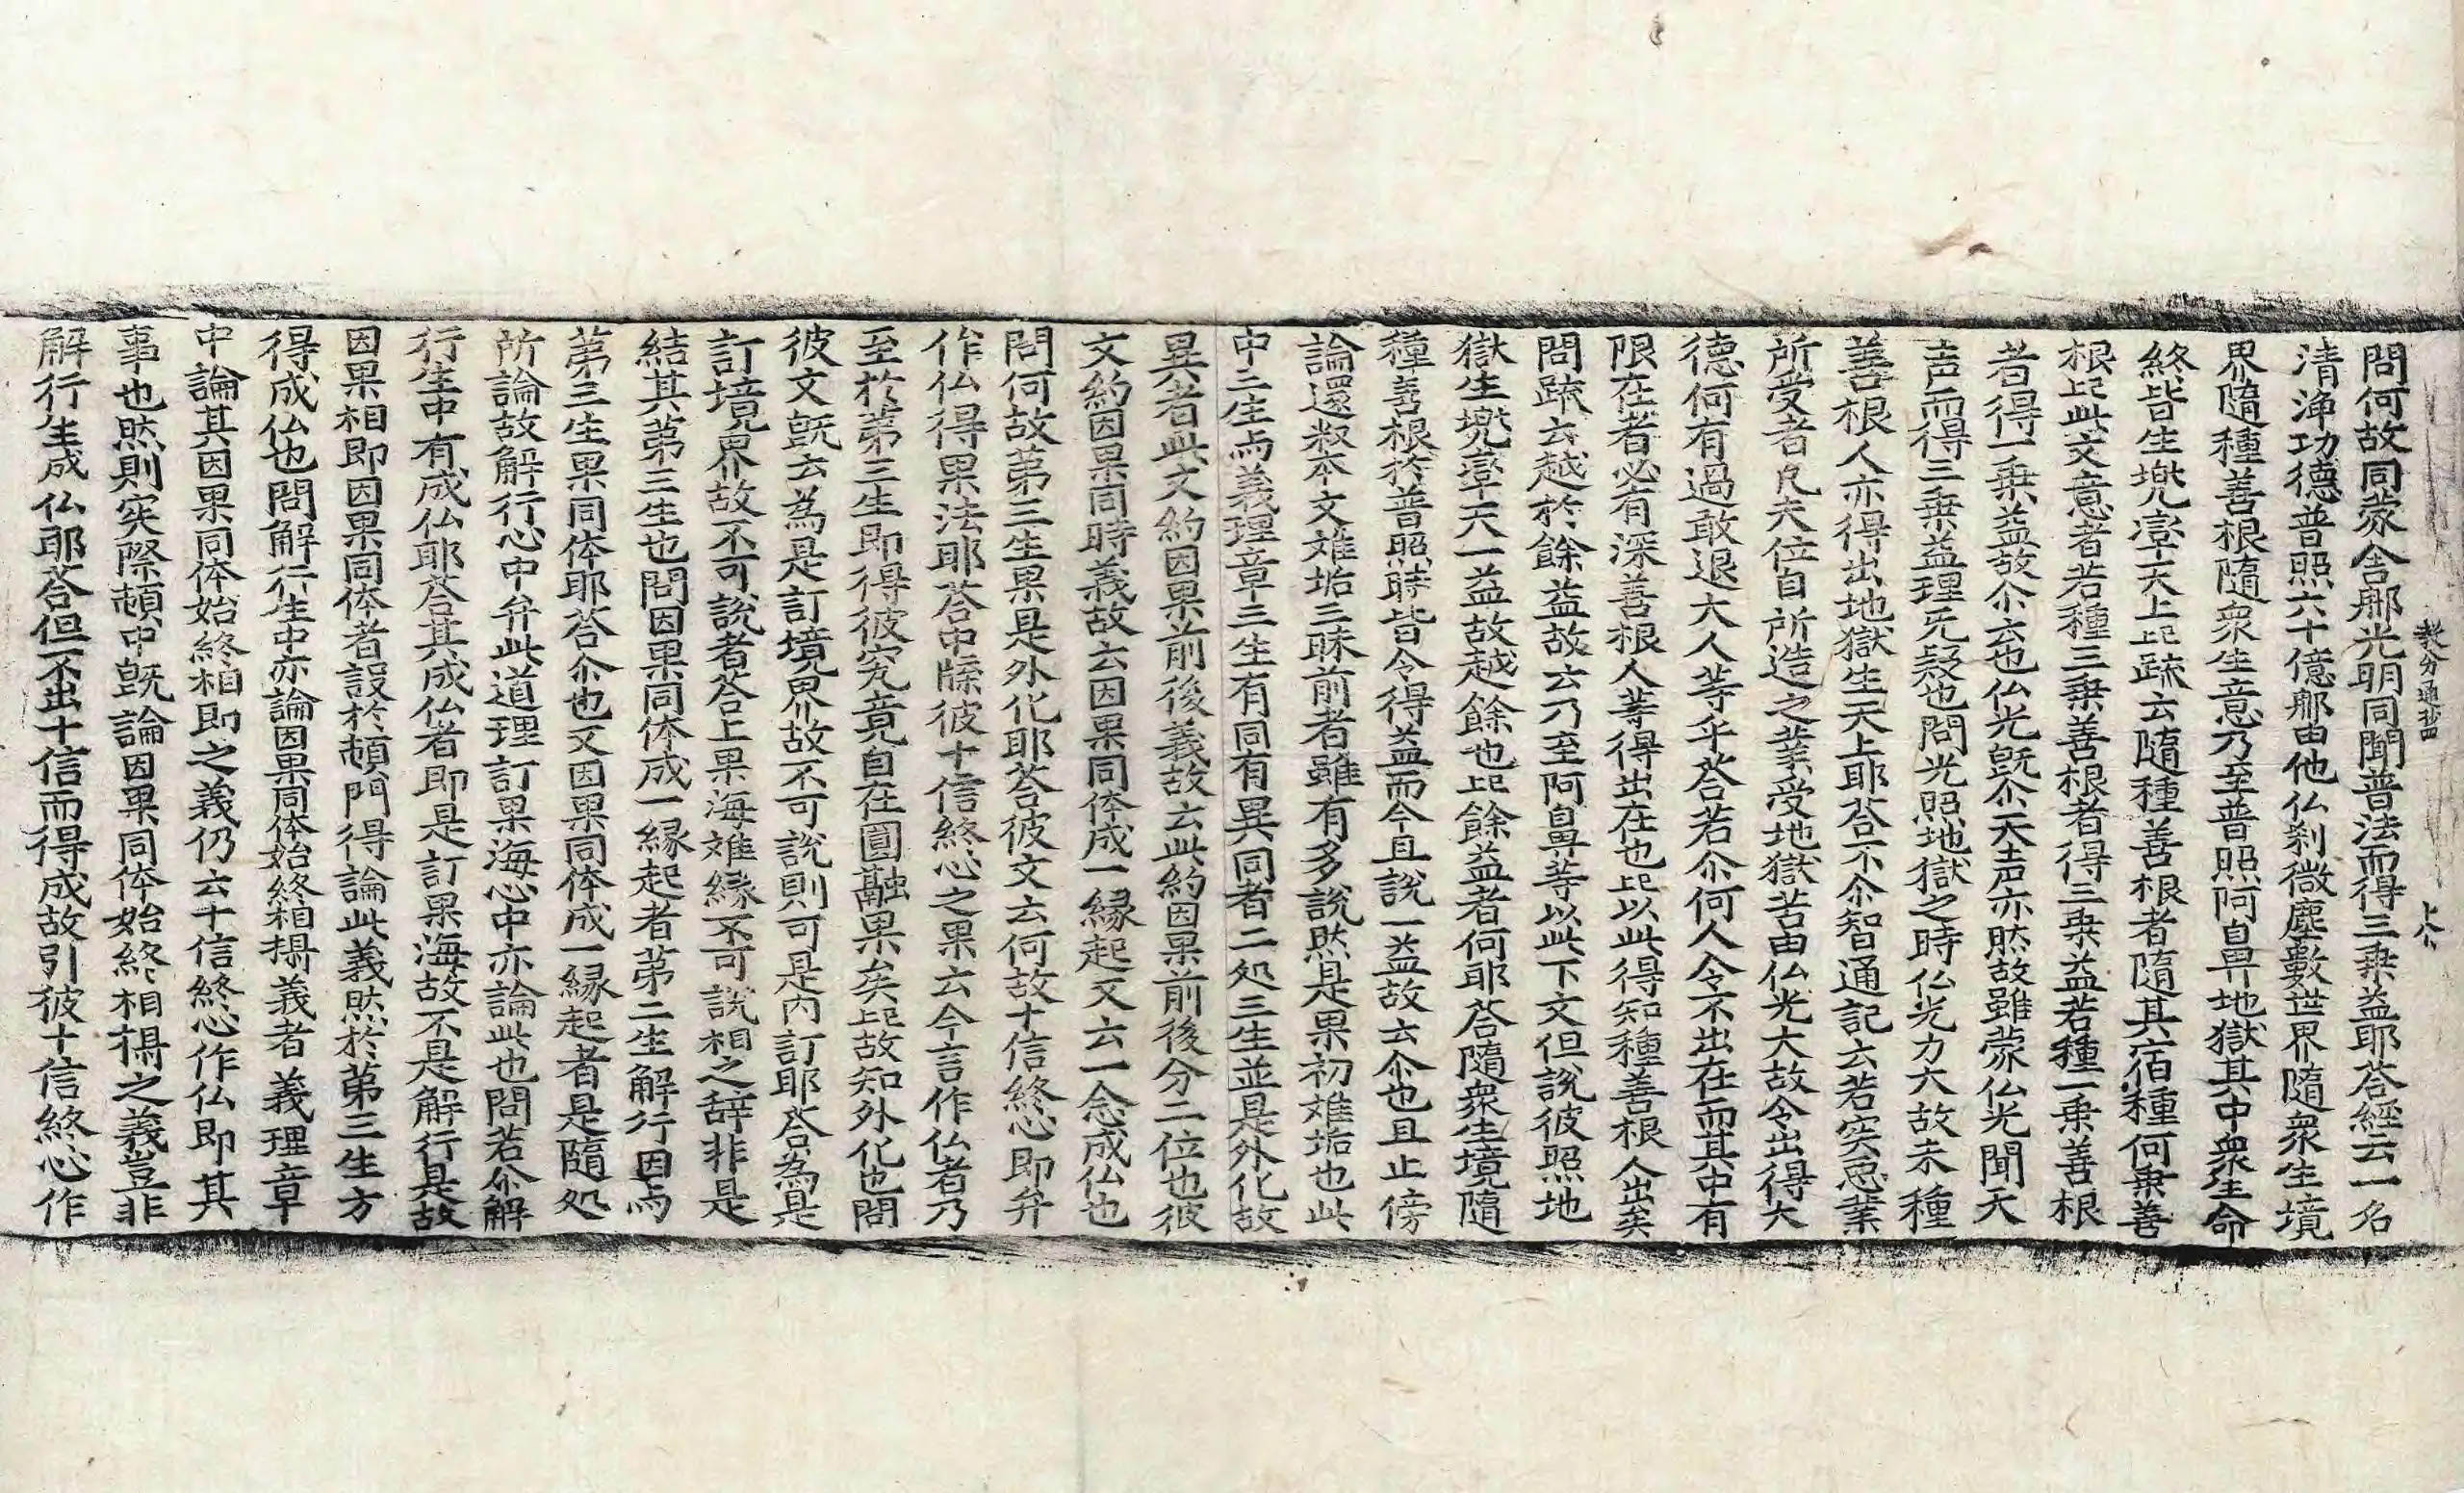 教分通抄四 上 八
問何故同蒙舍那光明同聞普法而得三乗益耶荅經云一名
清淨功德普照六十億那由他仏刹微塵數世界隨衆生境
界隨種善根隨衆生意乃至普照阿鼻地獄其中衆生命
終皆生兜率天上記䟽云隨種善根者隨其宿種何乗善
根記此文意者若種三乗善根者得三乗益若種一乗善根
者得一乗益故尒云也仏光旣尒天声亦然故雖蒙仏光聞天
声而得三乗益理无疑也問光照地獄之時仏光力大故未種
善根人亦得出地獄生天上耶荅不尒智通記云若実惡業
所受者凡夫位自所造之業受地獄苦由仏光大故令出得大
德何有過敢退大人等乎荅若尒何人令不出在而其中有
限在者必有深善根人等得出在也記以此得知種善根人出矣
問䟽云越於餘益故云乃至阿鼻等以此下文但說彼照地
獄生兜率天一益故越餘也記餘益者何耶荅隨衆生境隨
種善根於普照時皆令得益而今且說一益故云尒也且止傍
論還叙本文離垢三昧前者雖有多說然是果初離垢也此
中三生与義理章三生有同有異同者二処三生並是外化故
異者此文約因果前後義故云此約因果前後分二位也彼
文約因果同時義故云因果同体成一縁起又云一念成仏也
問何故第三生果是外化耶荅彼文云何故十信終心即弁
作仏得果法耶荅中牒彼十信終心之果云今言作仏者乃
至於第三生即得彼究竟自在圓融果矣記故知外化也問
彼文旣云為是訂境界故不可說則可是内訂耶荅為是
訂境界故不可說者荅上果海離縁不可說相之辞非是
結其第三生也問因果同体成一縁起者第二生解行因与
第三生果同体耶荅尒也又因果同体成一縁起者是隨処
所論故解行心中弁此道理訂果海心中亦論此也問若尒解
行生中有成仏耶荅其成仏者即是訂果海故不是解行是故
因果相即因果同体者設於頓門得論此義然於第三生方
得成仏也問解行生中亦論因果同体始終相摂義者義理章
中論其因果同体始終相即之義仍云十信終心作仏即其
事也然則実際頓中旣論因果同体始終相摂之義豈非
解行生成仏耶荅但不出十信而得成故引彼十信終心作